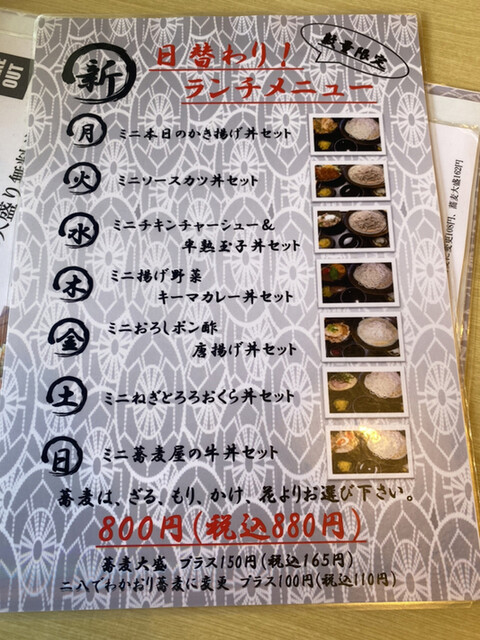 新
日替わり!
ランチメニュー
数量限定
月 ミニ本日のかき揚げ丼セット
火 ミニソースカツ丼セット
水 ミニチキンチャーシュー&
半熟玉子丼セット
木 ミニ揚げ野菜
キーマカレー丼セット
金 ミニおろしポン酢
唐揚げ丼セット
土 ミニねぎとろろおくら丼セット
日 ミニ蕎麦屋の牛丼セット
蕎麦は、ざる、もり、かけ、花よりお選び下さい。
800円(税込880円)
蕎麦大盛 プラス150円(税込165円)
二八でわかおり蕎麦に変更 プラス100円(税込110円)
OUT
大盛り無料
に変更108円、蕎麦大盛162円